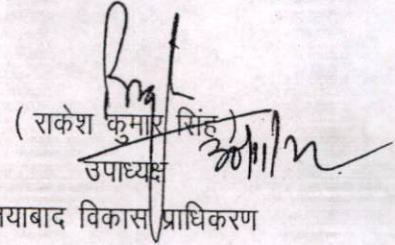 ( राकेश कुमार सिंह )
उपाध्यक्ष
याबाद विकास प्राधिकरण